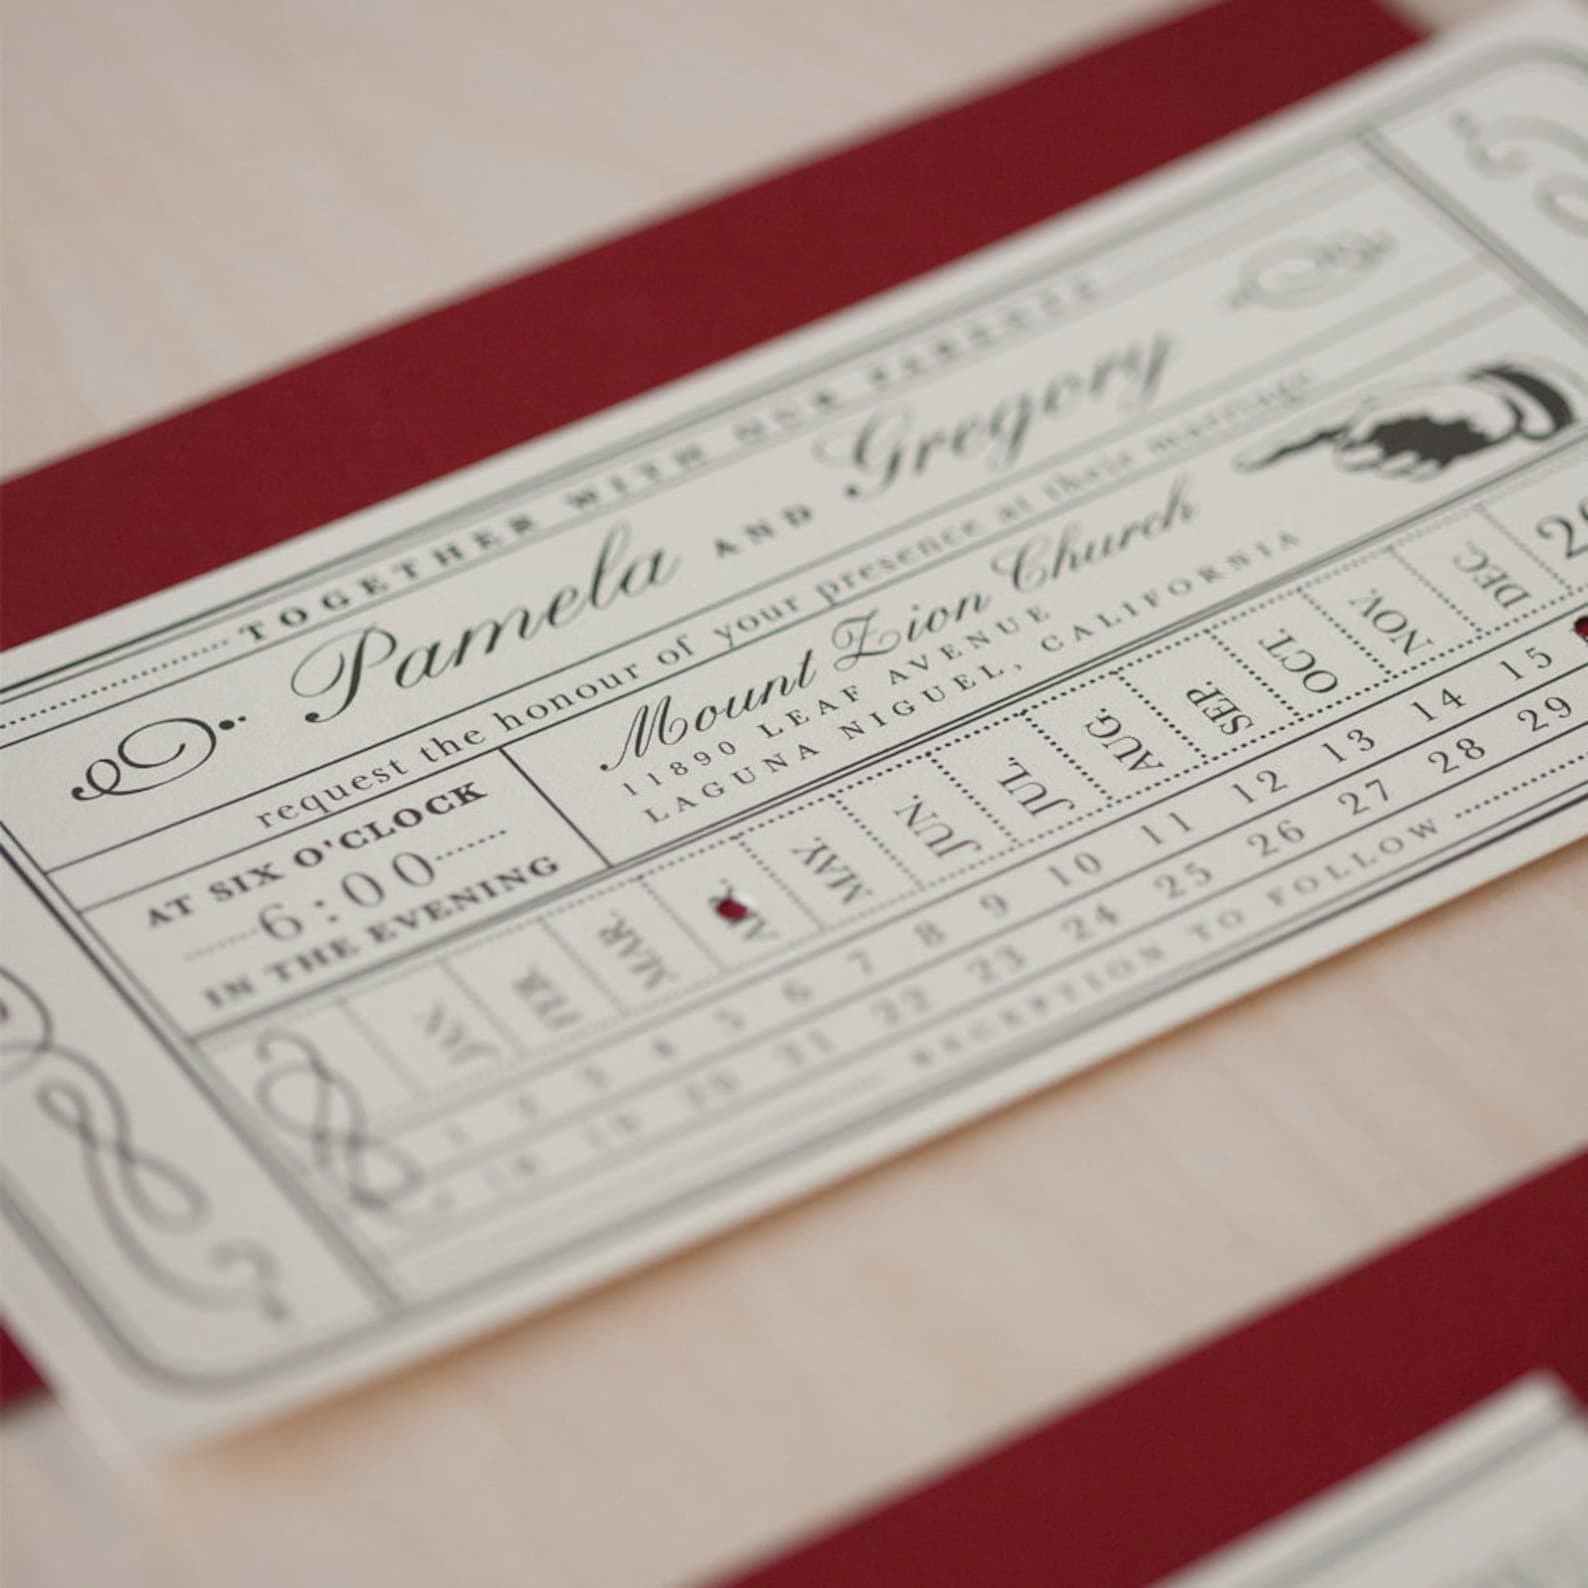 TOGETHER WITH OUR PARENTS
Pamela AND Gregory
request the honour of your presence at their marriage
AT SIX O'CLOCK
6:00
IN THE EVENING
Mount Zion Church
11890 LEAF AVENUE
LAGUNA NIGUEL, CALIFORNIA
JAN. FEB. MAR. APR. MAY. JUN. JUL. AUG. SEP. OCT. NOV. DEC. 20
1 2 3 4 5 6 7 8 9 10 11 12 13 14 15
18 19 20 21 22 23 24 25 26 27 28 29
RECEPTION TO FOLLOW